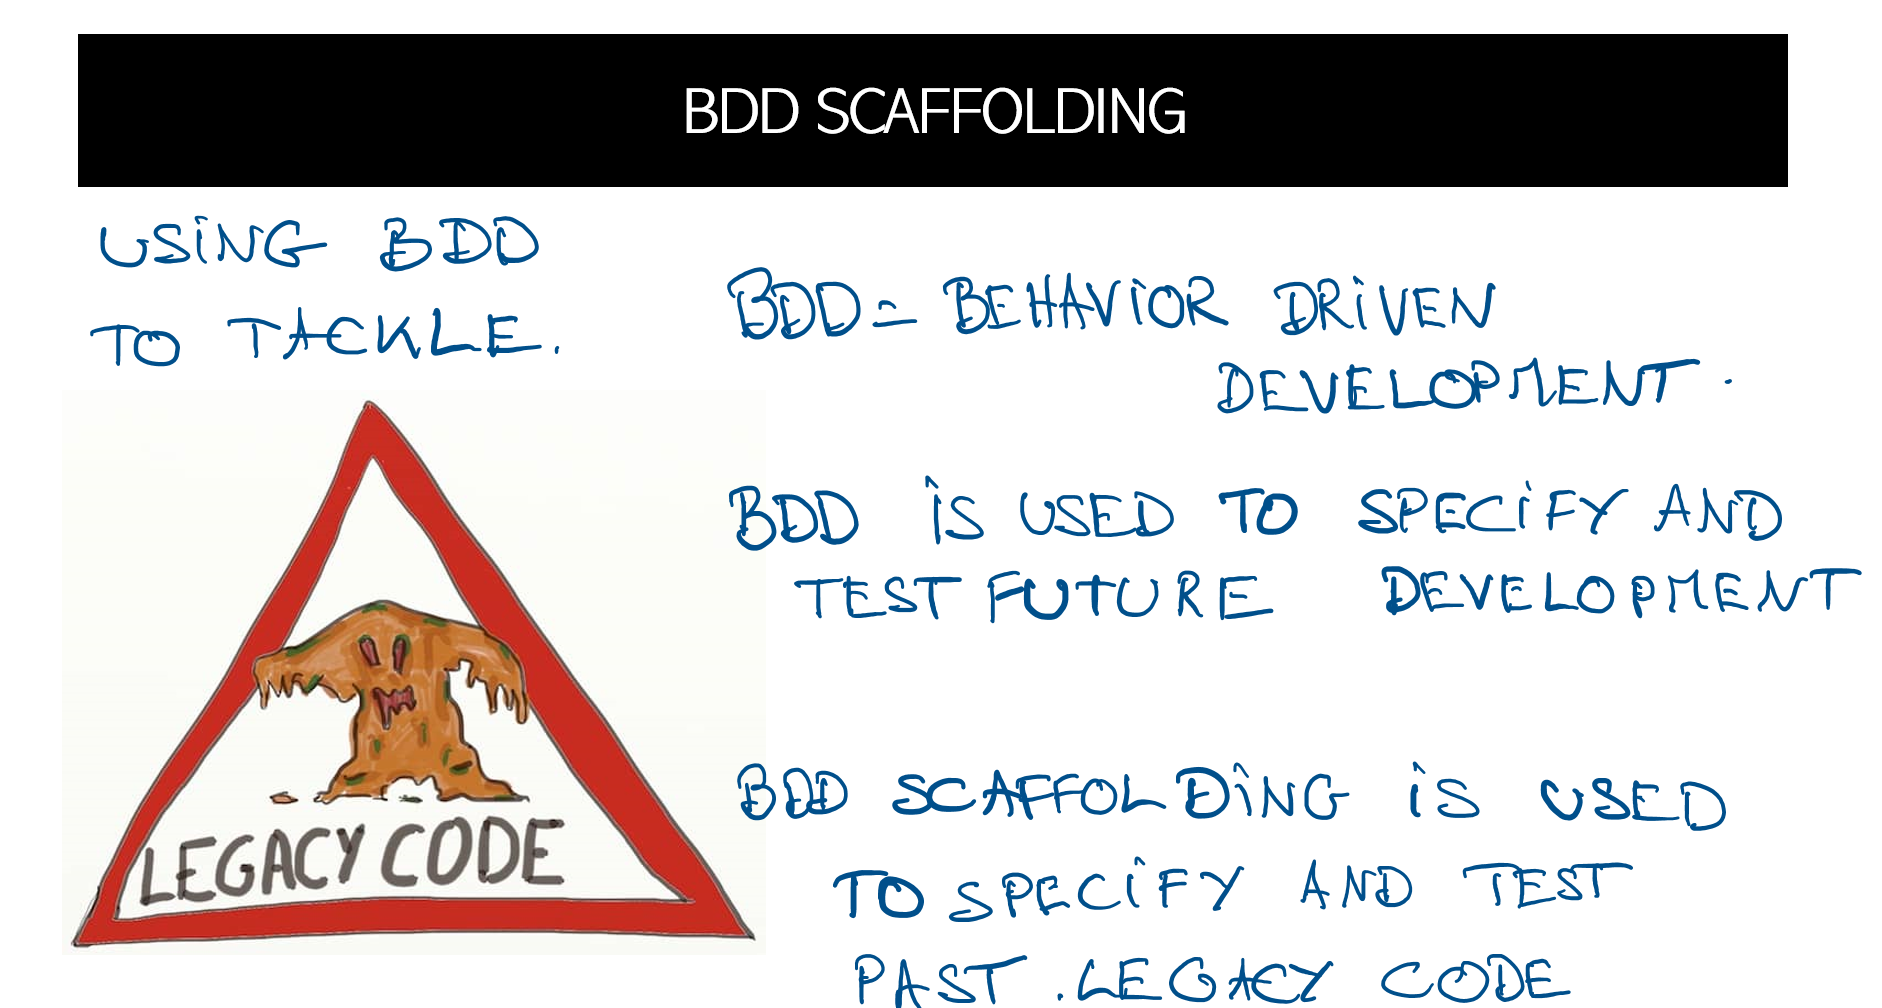 BDD SCAFFOLDING
USING BDD
TO TACKLE.
LEGACY CODE
BDD = BEHAVIOR DRIVEN
DEVELOPMENT.
BDD IS USED TO SPECIFY AND
TEST FUTURE DEVELOPMENT
BDD SCAFFOLDING IS USED
TO SPECIFY AND TEST
PAST . LEGACY CODE